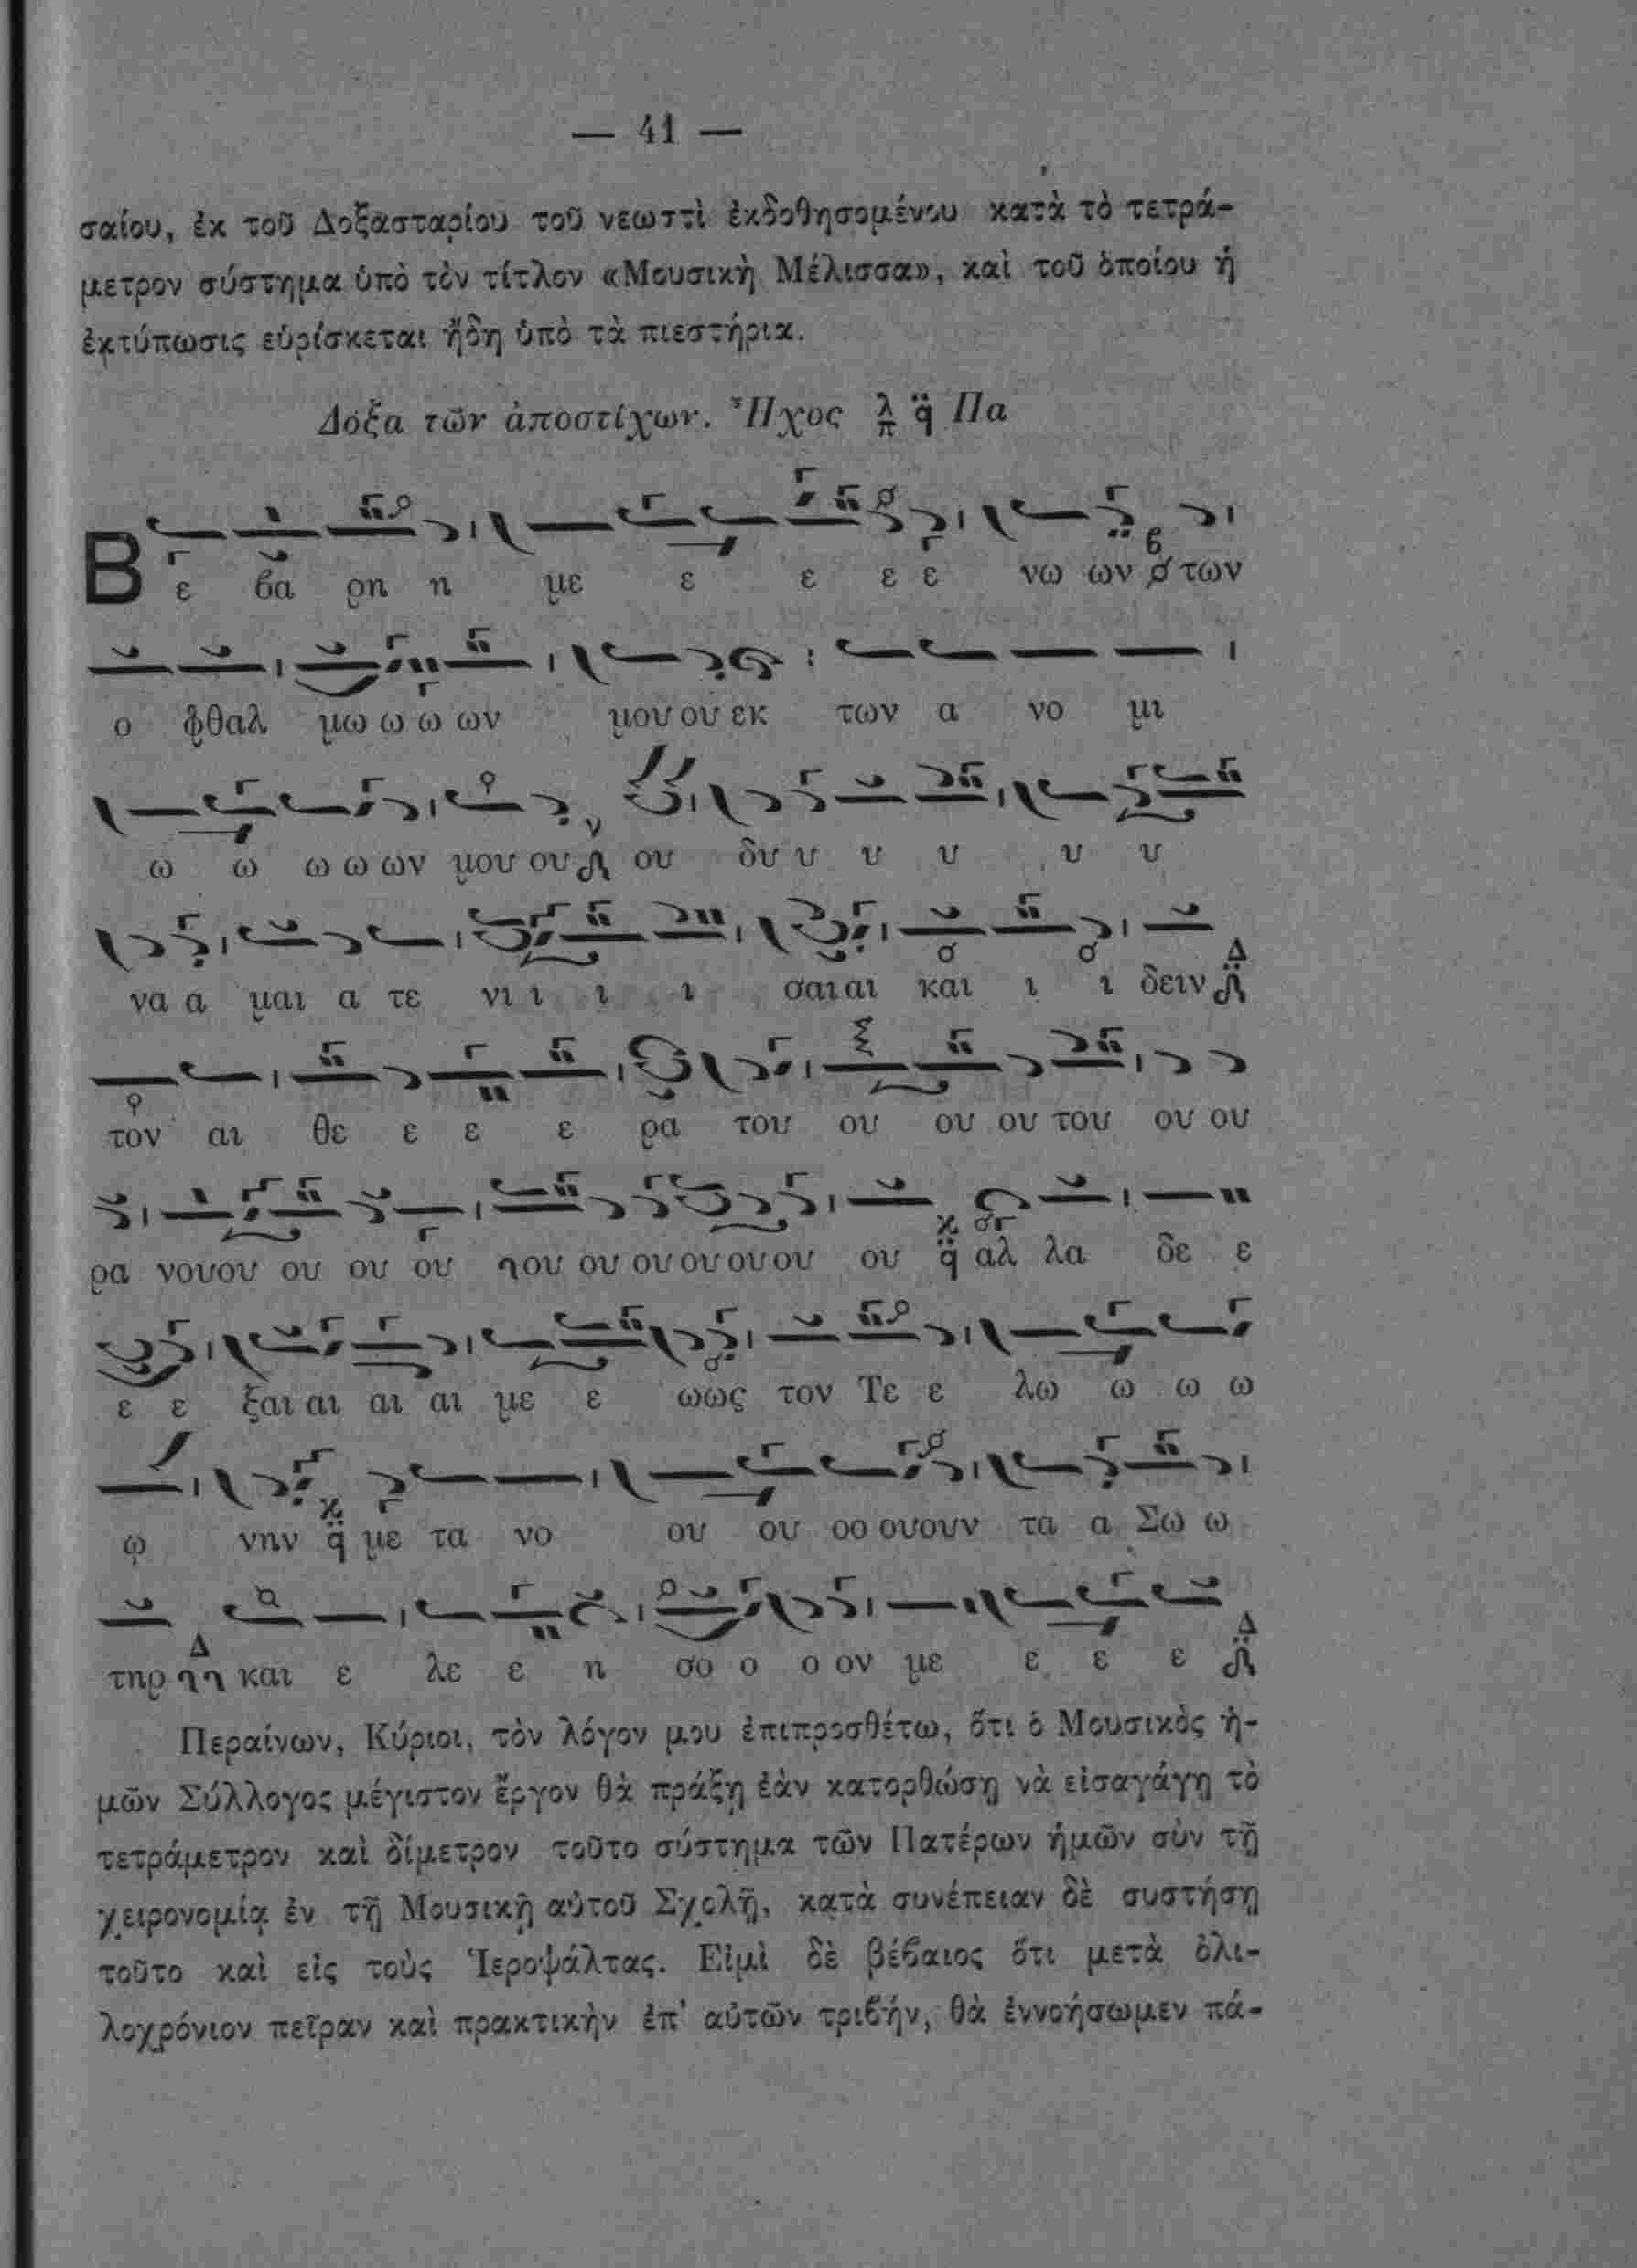 — 41 —
σαίου, ἐκ τοῦ Δοξασταρίου τοῦ νεωστὶ ἐκδοθησομένου κατὰ τὸ τετρά-
μετρον σύστημα ὑπὸ τὸν τίτλον «Μουσικὴ Μέλισσα», καὶ τοῦ ὁποίου ἡ
ἐκτύπωσις εὑρίσκεται ἤδη ὑπὸ τὰ πιεστήρια.
Δόξα τῶν ἀποστίχων. Ἦχος λ π q̈ Πα
Β ε βα ρη η με ε ε ε ε νω ων των
ο φθαλ μω ω ω ων μου ου εκ των α νο μι
ω ω ω ω ων μου ου ου δυ υ υ υ υ υ
να α μαι α τε νι ι ι ι σαι αι και ι ι δειν
τον αι θε ε ε ε ρα του ου ου ου του ου ου
ρα νου ου ου ου ου ου ου ου ου ου ου ου αλ λα δε ε
ε ε ξαι αι αι αι με ε ωως τον Τε ε λω ω ω ω
ω νην με τα νο ου ου οο ουουν τα α Σω ω
τηρ και ε λε ε η σο ο ο ον με ε ε ε
Περαίνων, Κύριοι, τὸν λόγον μου ἐπιπροσθέτω, ὅτι ὁ Μουσικὸς ἡ-
μῶν Σύλλογος μέγιστον ἔργον θὰ πράξῃ ἐὰν κατορθώσῃ νὰ εἰσαγάγῃ τὸ
τετράμετρον καὶ δίμετρον τοῦτο σύστημα τῶν Πατέρων ἡμῶν σὺν τῇ
χειρονομίᾳ ἐν τῇ Μουσικῇ αὐτοῦ Σχολῇ, κατὰ συνέπειαν δὲ συστήσῃ
τοῦτο καὶ εἰς τοὺς Ἱεροψάλτας. Εἰμὶ δὲ βέβαιος ὅτι μετὰ ὀλι-
λοχρόνιον πεῖραν καὶ πρακτικὴν ἐπ' αὐτῶν τριβήν, θὰ ἐννοήσωμεν πά-